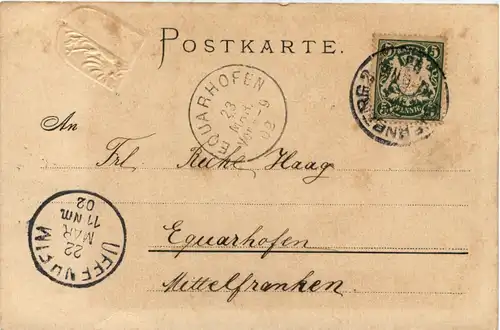 POSTKARTE.
EQUARHOFEN
23
MRZ
Vor. 7-9
02
5
5
PFENNIG
NÜRNBERG 2
An
Frl.
Haag
UFFENHEIM
22
MAR
11 Nm
02
Equarhofen
Mittelfranken.